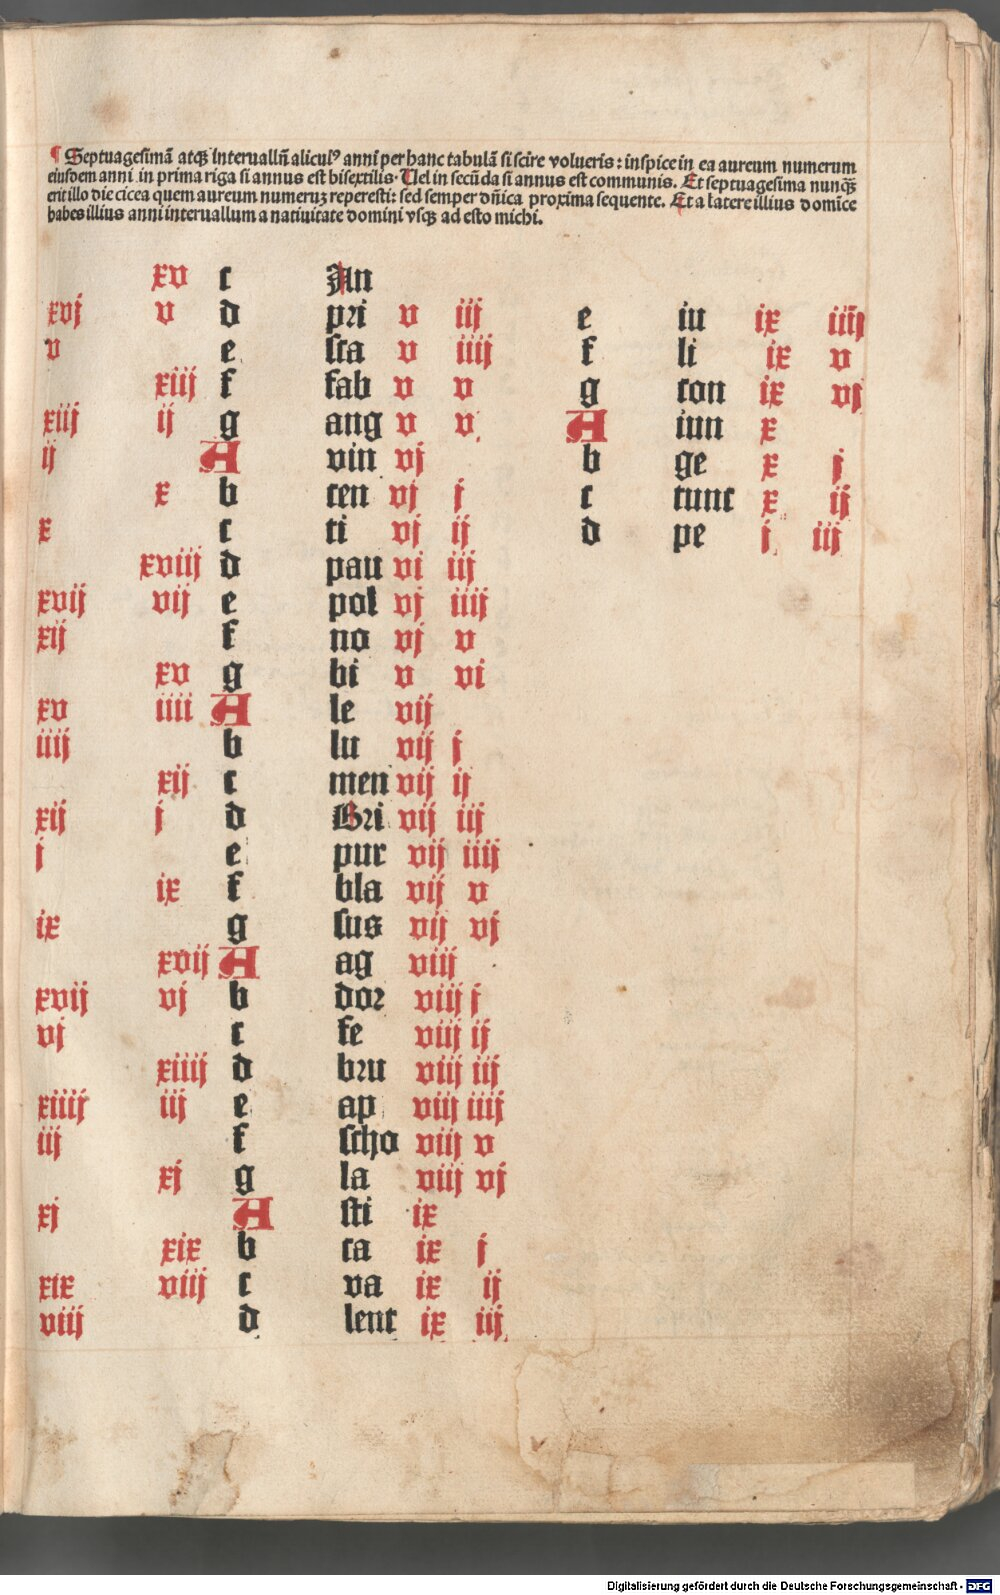 ¶ Septuagesimā atqꝫ interuallū alicuiꝰ anni per hanc tabulā si scire volueris : inspice in ea aureum numerum
eiusdem anni in prima riga si annus est bisextilis. Uel in secūda si annus est communis. Et septuagesima nunqꝫ̄
erit illo die circa quem aureum numeruꝫ reperesti: sed semper dn̄ica proxima sequente. Et a latere illius domīce
habes illius anni interuallum a natiuitate domini vsqꝫ ad esto michi.
xv c An
xvj v d pri v iij e iu ix iiij
v e sca v iiij f li ix v
xiij f fab v v g con ix vj
xiij ij g ang v v A iun x
ij A vin vj b ge x j
x b cen vj j c tunc x ij
x c ti vj ij d pe j iij
xviij d pau vi iij
xvij vij e pol vj iiij
xij f no vj v
xv g bi v vi
xv iiii A le vij
iiij b lu vij j
xij c men vij ij
xij j d Bri vij iij
j e pur vij iiij
ix f bla vij v
ix g sus vij vj
xvij A ag viij
xvij vj b dor viij j
vj c fe viij ij
xiiij d bru viij iij
xiiij iij e ap viij iiij
iij f scho viij v
xj g la viij vj
xj A sti ix
xix b ca ix j
xix viij c va ix ij
viij d lent ix iij
Digitalisierung gefördert durch die Deutsche Forschungsgemeinschaft - DFG